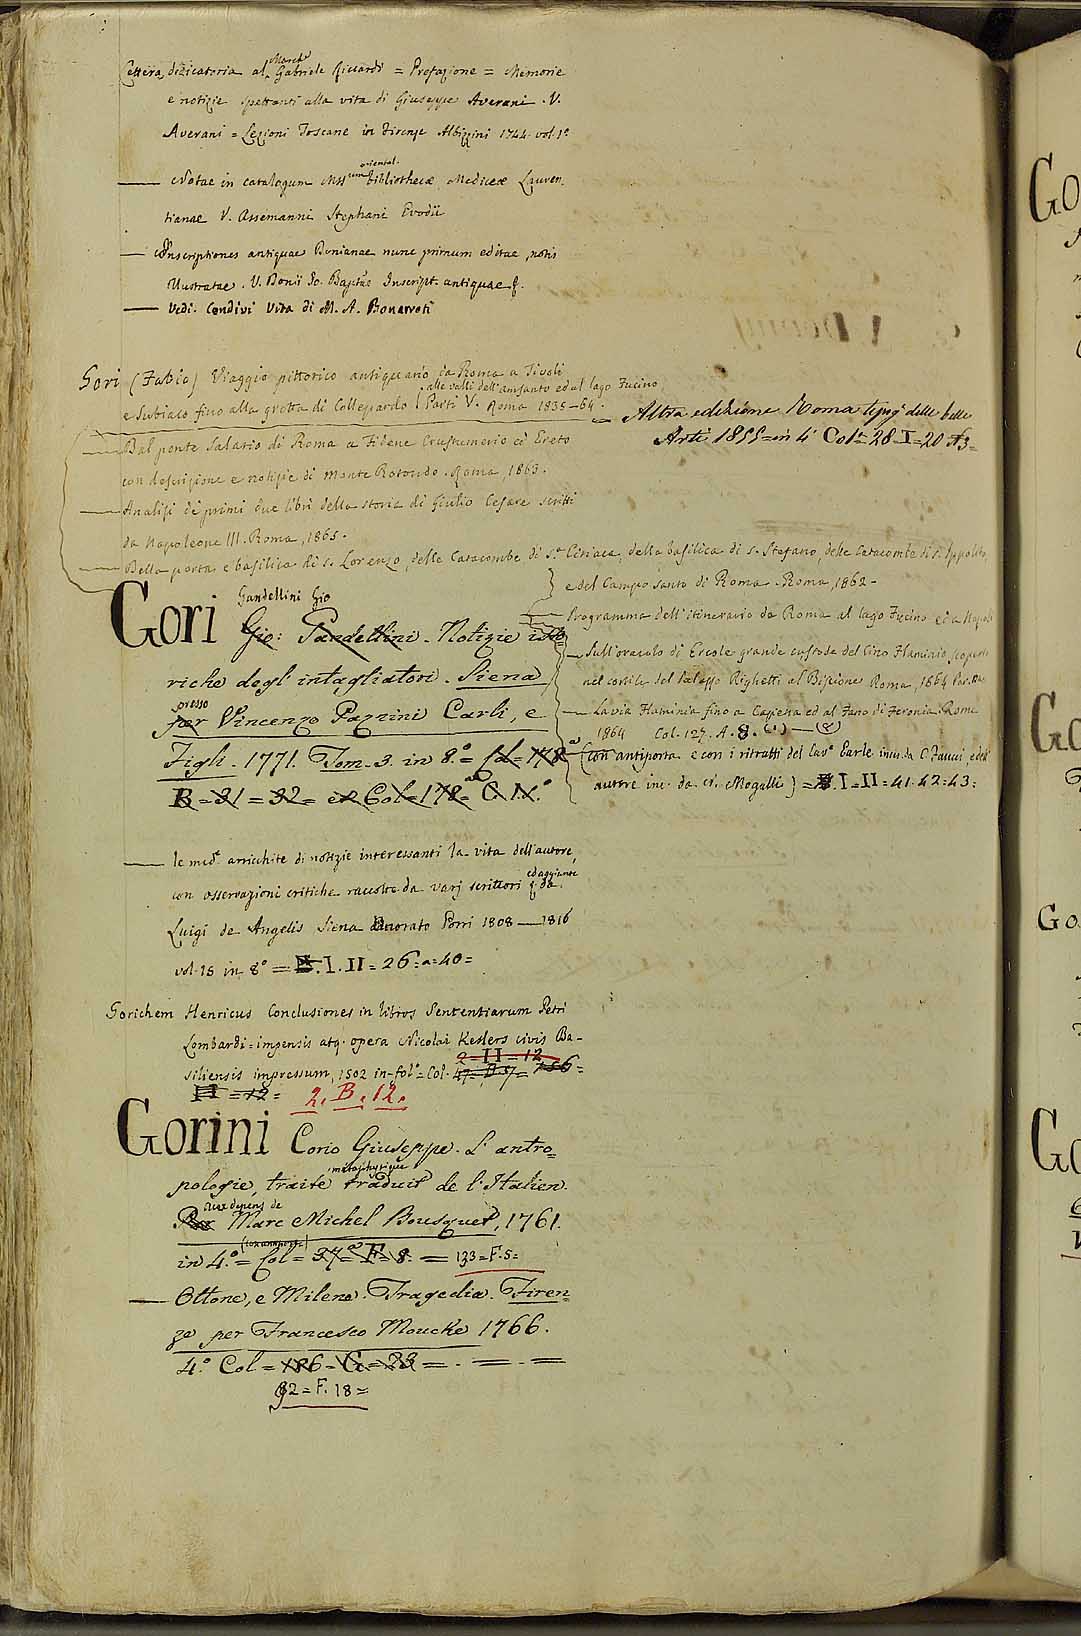 Lettera dedicatoria al March.e Gabriele Riccardi = Prefazione = Memorie
e notizie spettanti alla vita di Giuseppe Averani. V.
Averani = Lezioni Toscane in Firenze Albizzini 1744. vol. 1.o
— Notae in catalogum Mss.rum oriental. bibliothecæ Mediceæ Lauren.
tianae V. Assemanni Stephani Evodii
— Inscriptiones antiquae Donianae nunc primum editae, notis
Illustratae. V. Donii Jo. Baptæ Inscript. antiquae f.
— Vedi. Condivi Vita di M. A. Bonarroti
Gori (Fabio) Viaggio pittorico antiquario da Roma a Tivoli
e Subiaco fino alla grotta di Collepardo, alle valli dell'amsanto ed al lago Fucino,
Parti V. Roma 1855-64.
= Altra edizione Roma tipog. delle belle
Arti 1855 = in 4 Col.a 28-I=20 A3=
— Dal ponte Salario di Roma a Fidene Crustumerio ed Ereto
con descrizione e notizie di Monte Rotondo. Roma, 1863.
— Analisi de' primi due libri della storia di Giulio Cesare scritti
da Napoleone III. Roma, 1865.
— Della porta e basilica di S. Lorenzo, delle Catacombe di S.a Ciriaca, della basilica di S. Stefano, delle Catacombe di S. Ippolito,
e del Campo Santo di Roma. Roma, 1862-
— Programma dell'itinerario da Roma al lago Fucino ed a Napoli
— Sull'oracolo di Ercole grande custode del Circo Flaminio scoperto
nel cortile del Palazzo Righetti al Biscione Roma, 1864
— La via Flaminia fino a Capena ed al Fano di Feronia. Roma
1864 Col. 127. A. 8. (1) — (8)
Gori Gandellini Gio
Gio: Gandellini. Notizie isto
riche degl' intagliatori. Siena
presso per Vincenzo Pazzini Carli, e
Figli. 1771. Tom. 3. in 8.o = Col = 178
B = 31 = 32 = et Col = 178 = C. IX.o
(con antiporta e con i ritratti del Cav.e Earle inc. da C. Faucci, e dell'
autore inc. da N. Mogalli) = B. I = II = 41. 42 = 43:
— le med.e arricchite di notizie interessanti la vita dell'autore,
con osservazioni critiche raccolte da varj scrittori ed aggiunte f. da
Luigi de Angelis Siena Onorato Porri 1808 — 1816
vol. 15 in 8.o = B. I. II = 26 = a = 40 =
Gorichem Henricus Conclusiones in libros Sententiarum Petri
Lombardi = impensis atq. opera Nicolai Keslers civis Ba-
2 = II = 12
siliensis impressum, 1502 in-fol.o = Col. 47 = B 7 = 756 =
H = 12 = 2. B. 12.
Gorini Corio Giuseppe. L' antro=
pologie, traité metaphysique traduit de l' Italien.
Par aux depens de Marc Michel Bousquet, 1761.
in 4.o (con antiporta) = Col = 37 = F = 8. = 133 = F. 5 =
— Ottone, e Milena. Tragedia. Firen=
ze per Francesco Moucke 1766.
4.o Col = 186 = G = 23 = . = . =
92 = F. 18 =
Go
Go
Go
Go